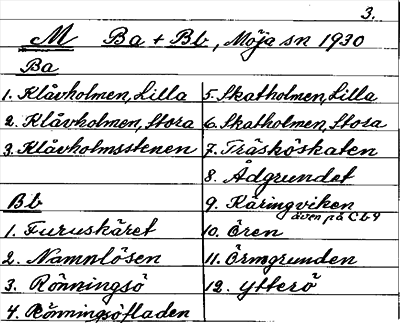 3.
M Ba + Bb, Möja sn 1930
Ba
1. Klåvholmen, Lilla
2. Klåvholmen, Stora
3. Klåvholmsstenen
Bb
1. Furuskäret
2. Namnlösen
3. Rönningsö
4. Rönningsöfladen
5. Skatholmen, Lilla
6. Skatholmen, Stora
7. Träsköskaten
8. Ådgrundet
9. Käringviken
även på Cb9
10. Ören
11. Örmgrunden
12. Ytterö